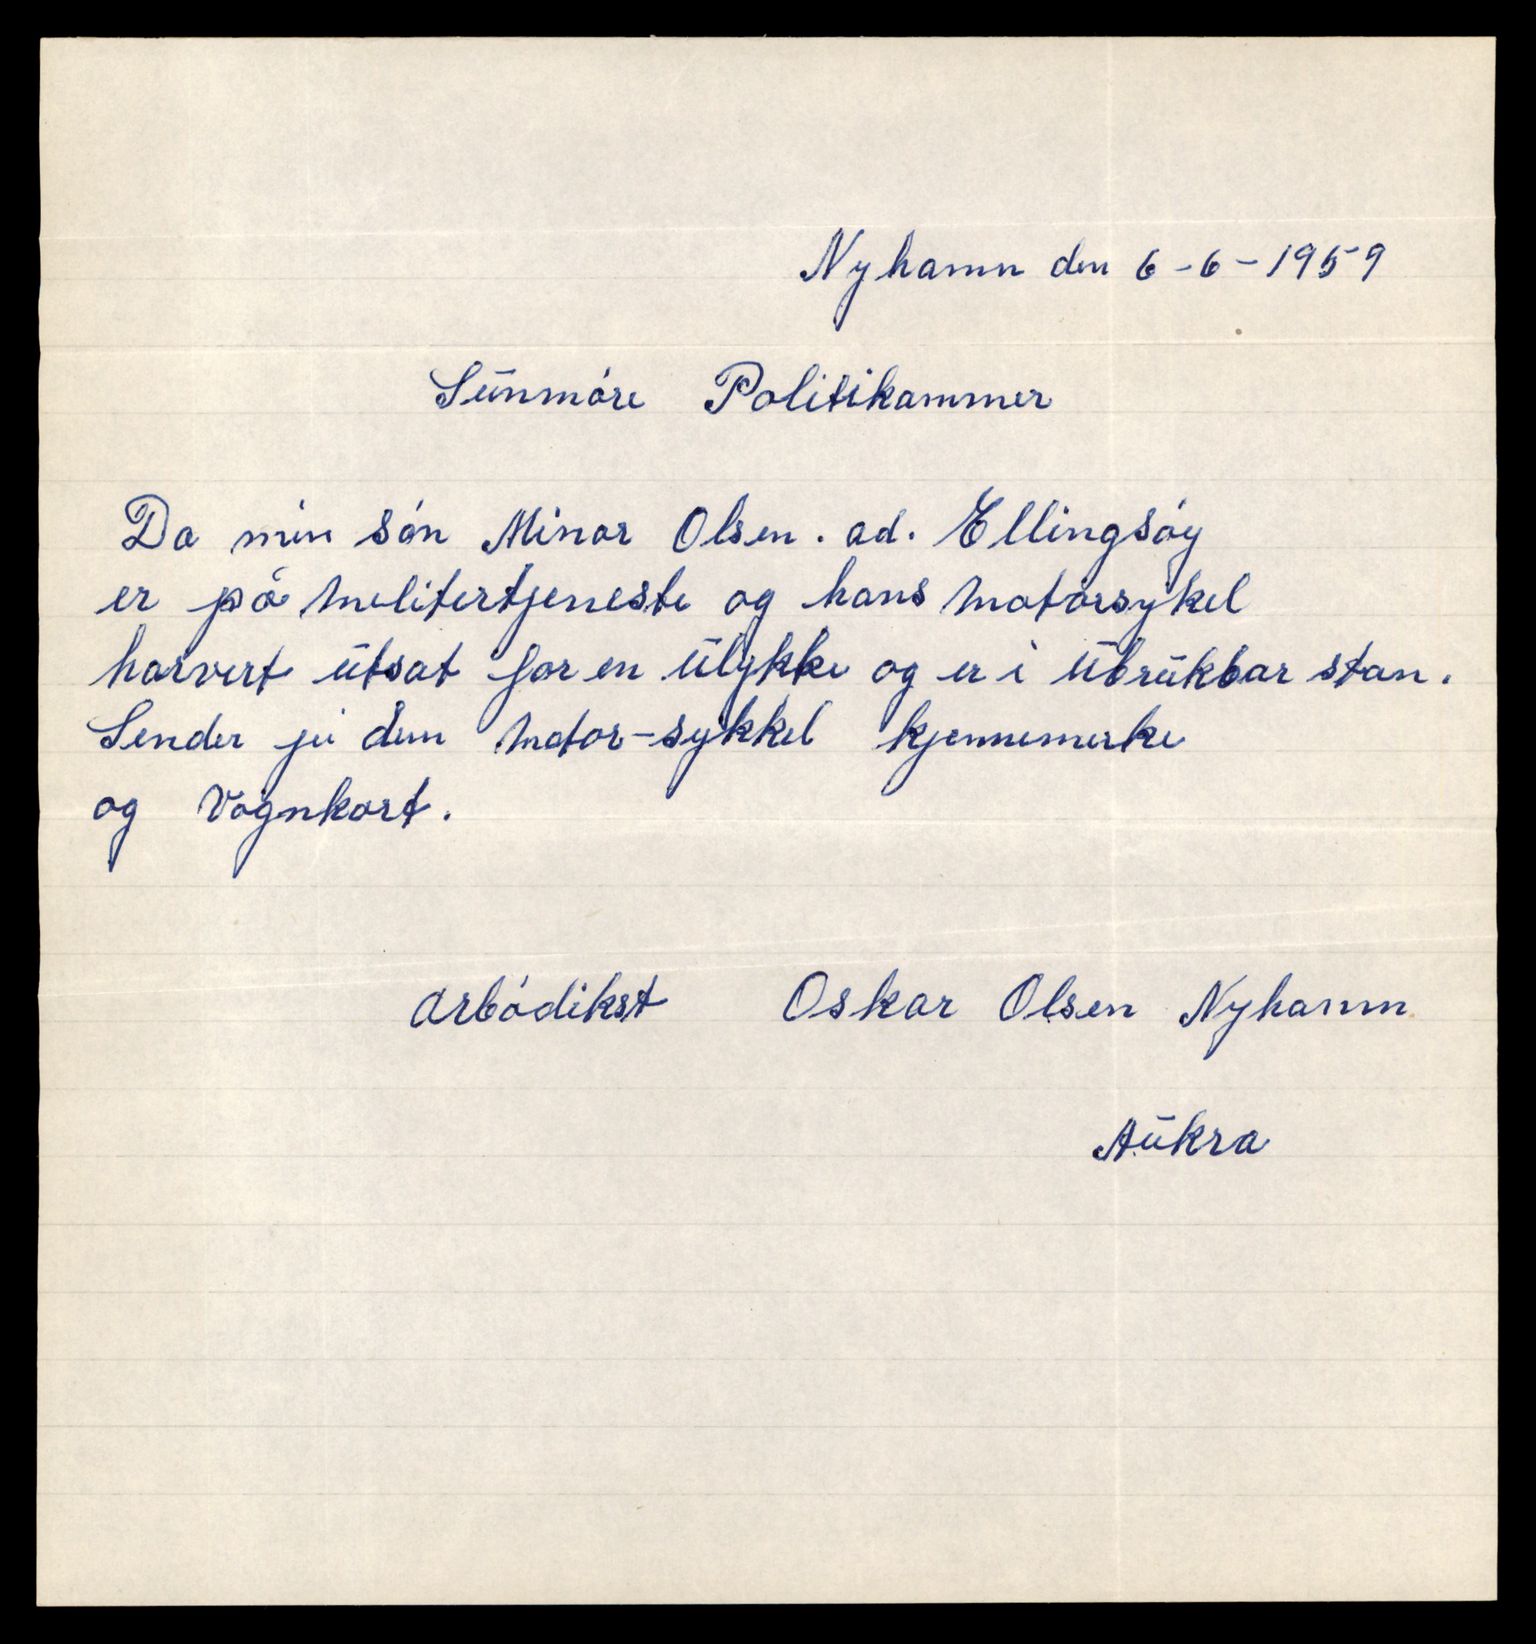 Nyhamn den 6-6-1959
Sunmóre Politikammer
Da min són Minar Olsen. ad. Ellingsóy
er på melitertjeneste og hans motorsykel
harvert utsat for en ulykke og er i ubrukbar stan.
Sender jei dem motor-sykkel kjennemerke
og vognkort.
Arbódikst Oskar Olsen Nyhamn
Aukra